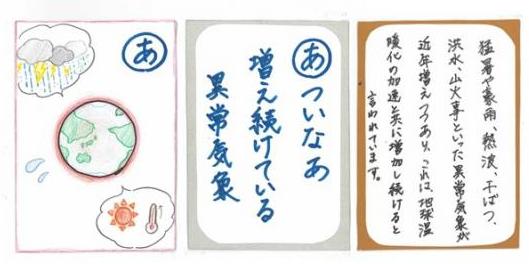 あ
あついなあ
増え続けている
異常気象
猛暑や豪雨、熱波、干ばつ、
洪水、山火事といった異常気象が
近年増えつつあり、これは、地球温
暖化の加速と共に増加し続けると
言われています。